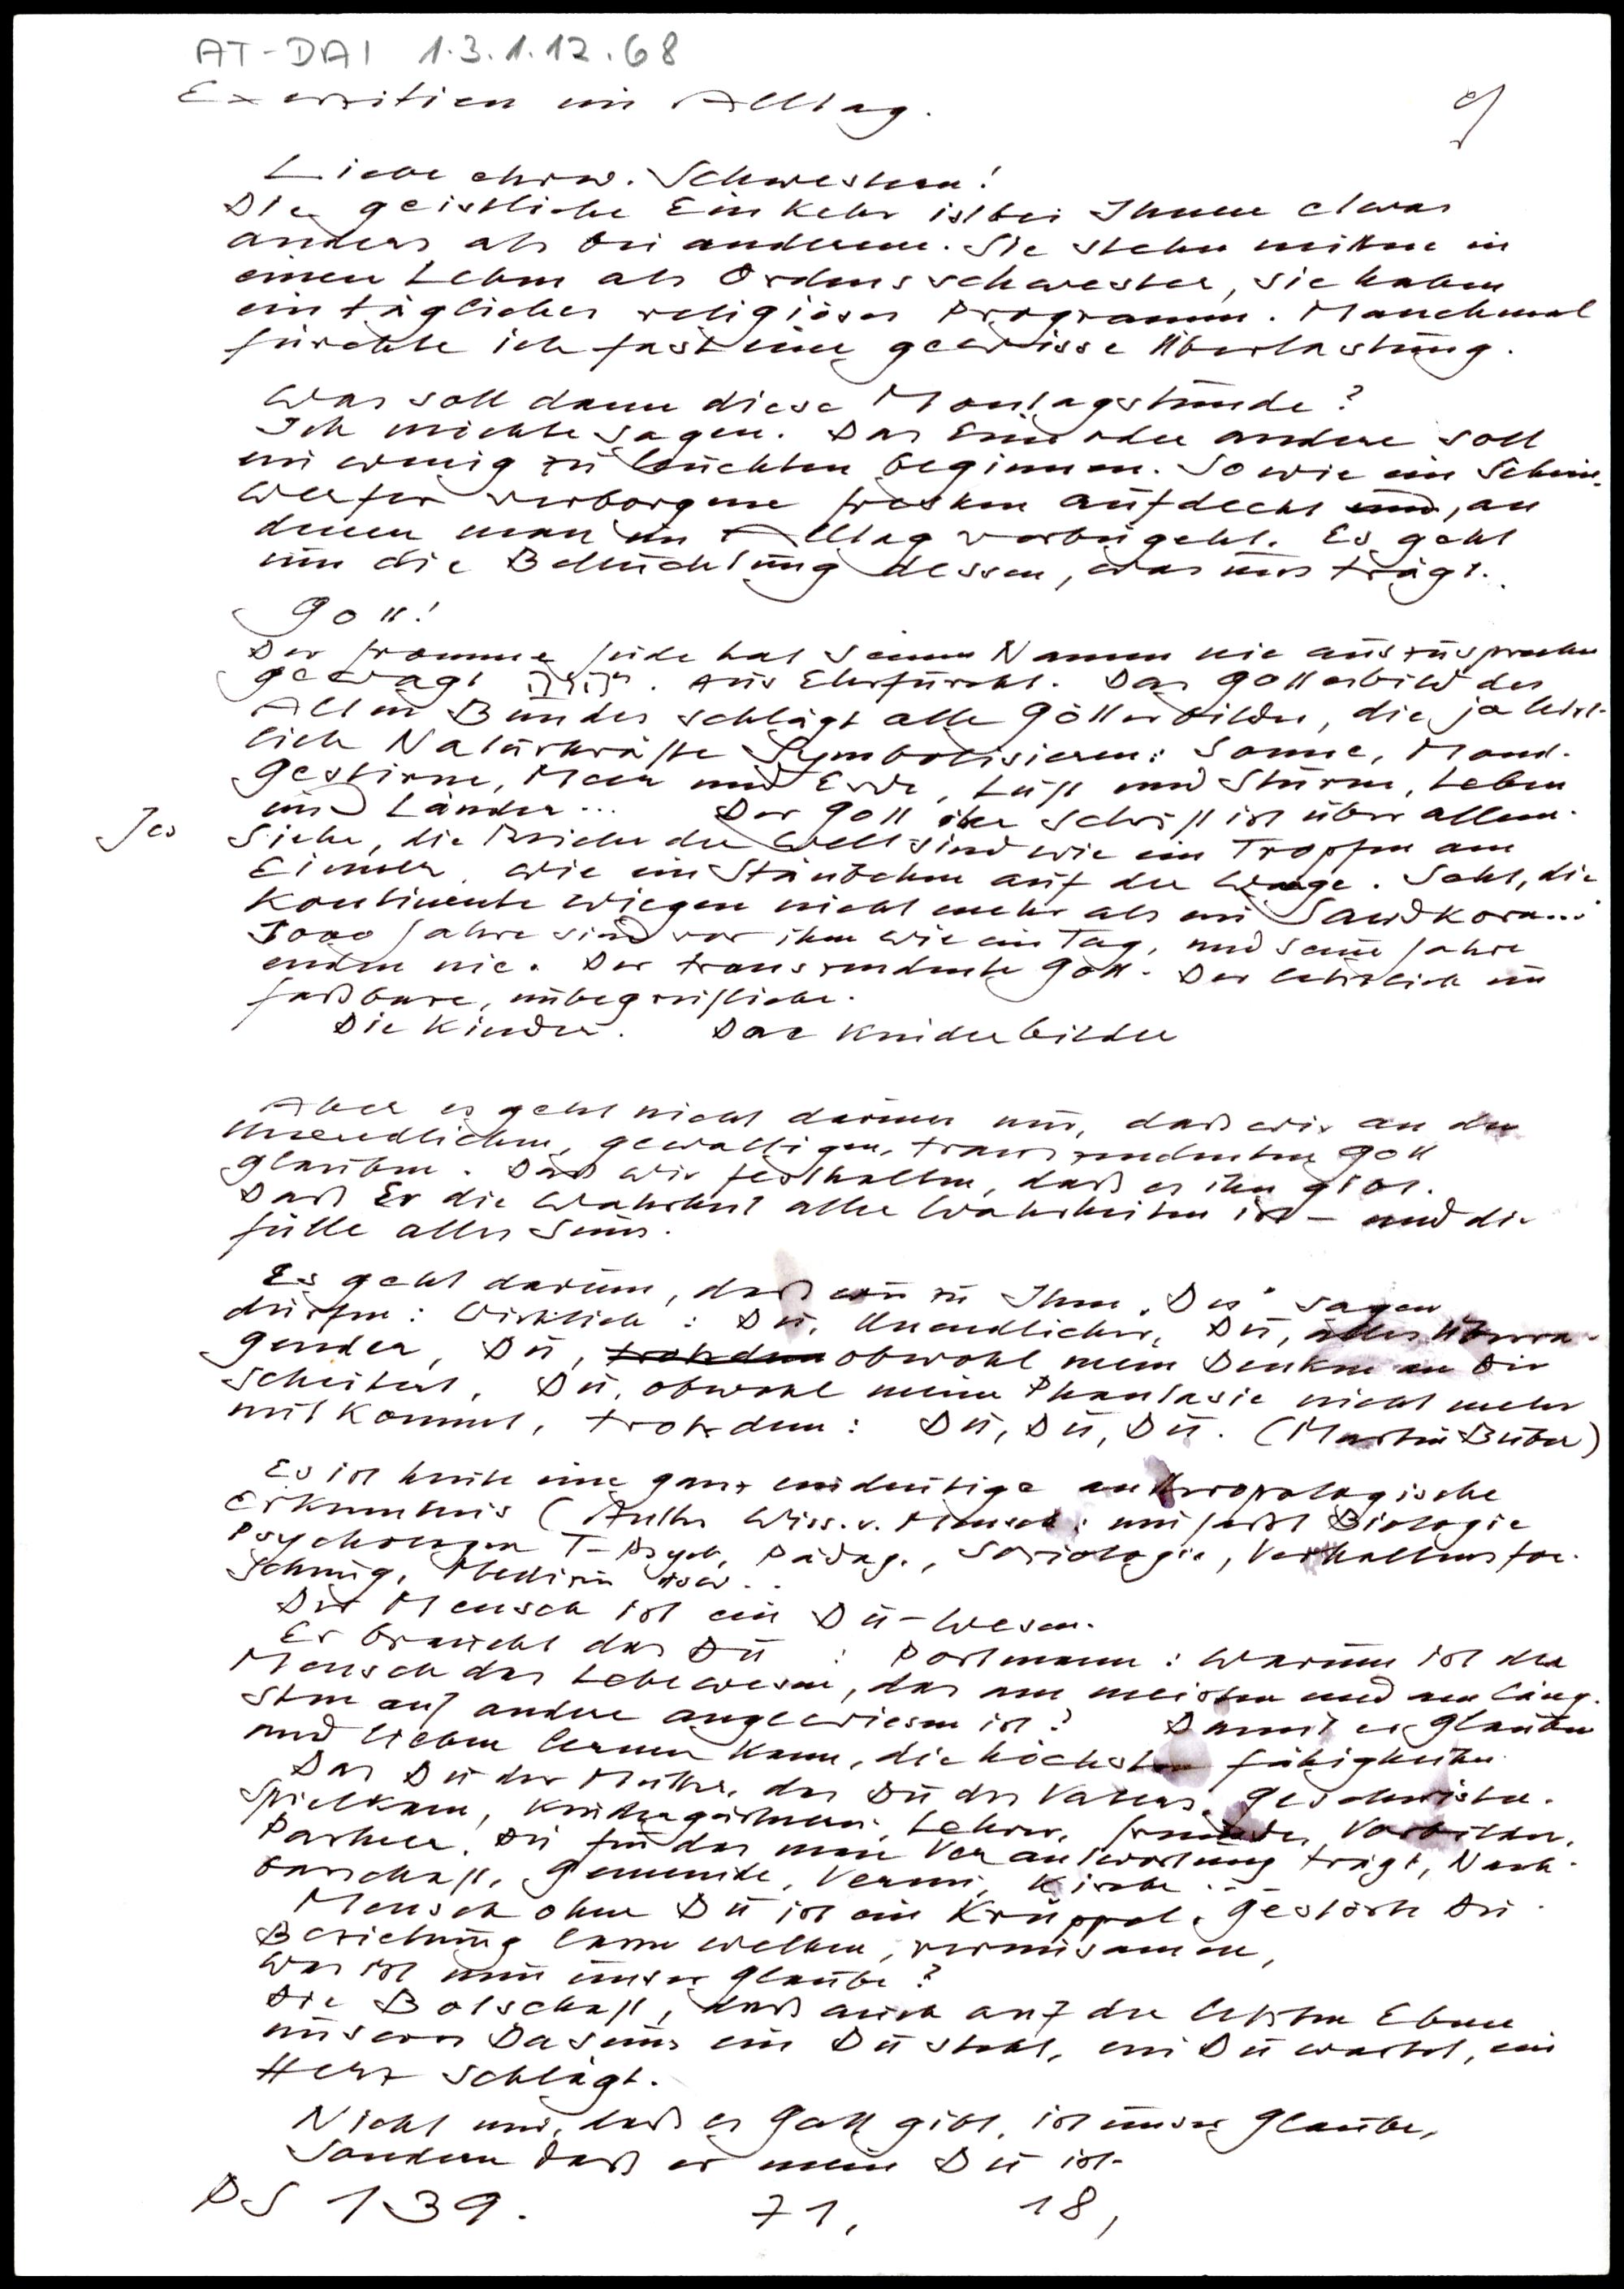 AT-DAI 1.3.1.12.68
Exerzitien im Alltag.
Liebe ehrw. Schwestern!
Die geistliche Einkehr ist bei Ihnen etwas
anders als bei anderen. Sie stehn mitten in
einem Leben als Ordensschwester, sie haben
ein tägliches religiöses Programm. Manchmal
fürchte ich fast eine gewisse Überlastung.
Was soll dann diese Montagstunde?
Ich möchte sagen. Das Eine oder andere soll
ein wenig zu leuchten beginnen. So wie ein Schein-
werfer verborgene Fresken aufdeckt und, an
denen man im Alltag vorbeigeht. Es geht
um die Beleuchtung dessen, was uns trägt.
Gott!
Der fromme Jude hat seinen Namen nie auszusprechen
gewagt. Aus Ehrfurcht. Das Gottesbild des
Alten Bundes schlägt alle Götterbilder, die ja letzt-
lich Naturkräfte Symbolisieren: Sonne, Mond.
Gestirne, Meer und Erde, Luft und Sturm, Leben
und Länder... Der Gott der Schrift ist über allem.
Jes Siehe, die Reiche der Welt sind wie ein Tropfen am
Eimer, wie ein Stäubchen auf der Waage. Seht, die
Kontinente wiegen nicht mehr als ein Sandkorn...
1000 Jahre sind vor ihm wie ein Tag, und seine Jahre
enden nie. Der transzendente Gott. Der letztlich un
faßbare, unbegreifliche.
Die Kinder. Das Kinderbilder
Aber es geht nicht darum nur, daß wir an den
Unendlichen, gewaltigen, transzendenten Gott
glauben. Daß wir festhalten, daß es ihn gibt.
Daß Er die Wahrheit aller Wahrheiten ist – und die
Fülle alles Seins.
Es geht darum, daß wir zu Ihm "Du" sagen
dürfen: Wirklich: Du, Unendlicher, Du, alles Überra-
gender, Du, trotzdem obwohl mein Denken an Dir
scheitert, Du, obwohl meine Phantasie nicht mehr
mitkommt, trotzdem: Du, Du, Du. (Martin Buber)
Es ist heute eine ganz eindeutige anthropologische
Erkenntnis (Anthr Wiss. v. Mensch: umfaßt Biologie
Psychologie T-Psych, Pädag., Soziologie, Verhaltensfor-
schung, Medizin usw..
Der Mensch ist ein Du-Wesen.
Er braucht das Du: Portmann: Warum ist der
Mensch das Lebewesen, das am meisten und am läng-
sten auf andere angewiesen ist? Damit er Glauben
und lieben lernen kann, die höchsten Fähigkeiten.
Das Du der Mutter, das Du des Vaters, Geschwister.
Spielkam, Kindergärtnerin, Lehrer, Freunde, Vorbilder,
Partner. Du für das man Verantwortung trägt, Nach-
barschaft, Gemeinde, Verein, Kirche...
Mensch ohne Du ist ein Krüppel. Gestörte Du-
Beziehung lassen welken, vereinsamen,
Was ist nun unser Glaube?
Die Botschaft, daß auch auf der letzten Ebene
unseres Daseins ein Du steht, ein Du wartet, ein
Herz schlägt.
Nicht nur, daß es Gott gibt, ist unser Glaube,
Sondern daß er mein Du ist.
PS 139. 71, 18,